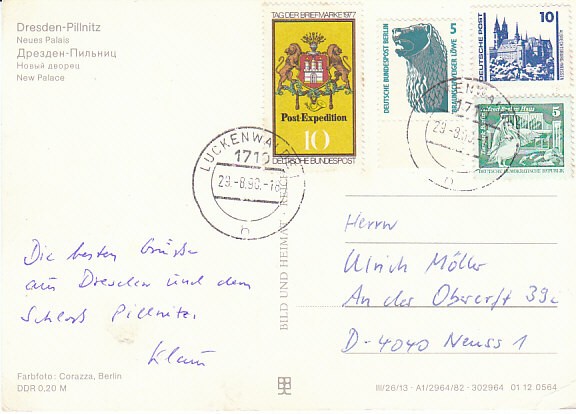 Dresden-Pillnitz
Neues Palais
Дрезден-Пильниц
Новый дворец
New Palace
TAG DER BRIEFMARKE 1977
Post-Expedition
10
DEUTSCHE BUNDESPOST
DEUTSCHE BUNDESPOST BERLIN
5
BRAUNSCHWEIGER LÖWE
DEUTSCHE POST
10
5
DEUTSCHE DEMOKRATISCHE REPUBLIK
LUCKENWALDE 1
1710
29.-8.90.-18
h
1710
29.-8.90
h
Die besten Grüße
aus Dresden und dem
Schloß Pillnitz.
Klaus
BILD UND HEIMAT · REICH
Herrn
Ulrich Möller
An der Obererft 39c
D-4040 Neuss 1
Farbfoto: Corazza, Berlin
DDR 0,20 M
III/26/13 - A1/2964/82 - 302964 01 12 0564